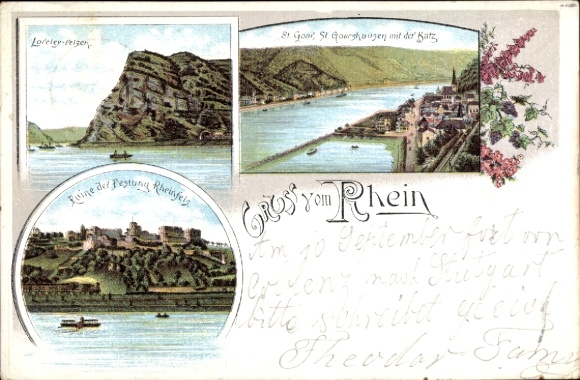 Loreley-Felsen.
St. Goar, St. Goarshausen mit der Katz.
Ruine der Festung Rheinfels
Gruss vom Rhein
Am 10 September fort von
Coblenz nach Stuttgart
bitte schreibet gleich
Theodor